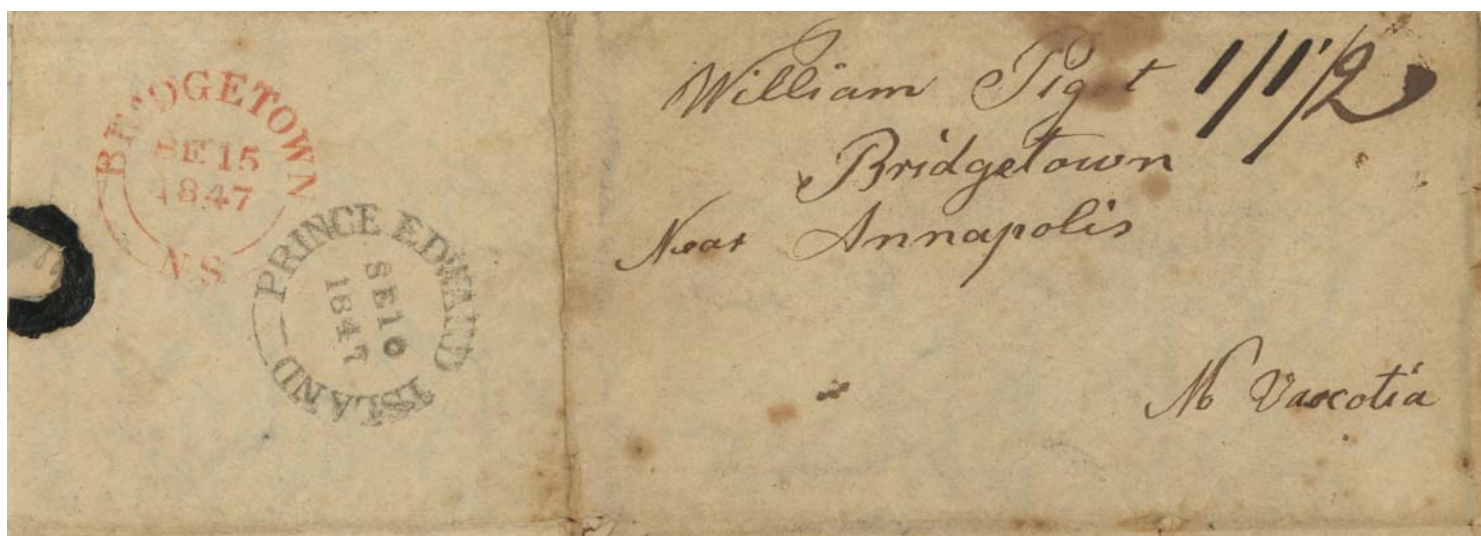 BRIDGETOWN
SE 15
1847
NS
PRINCE EDWARD ISLAND
SE 10
1847
William Pigot 1/1 1/2
Bridgetown
Near Annapolis